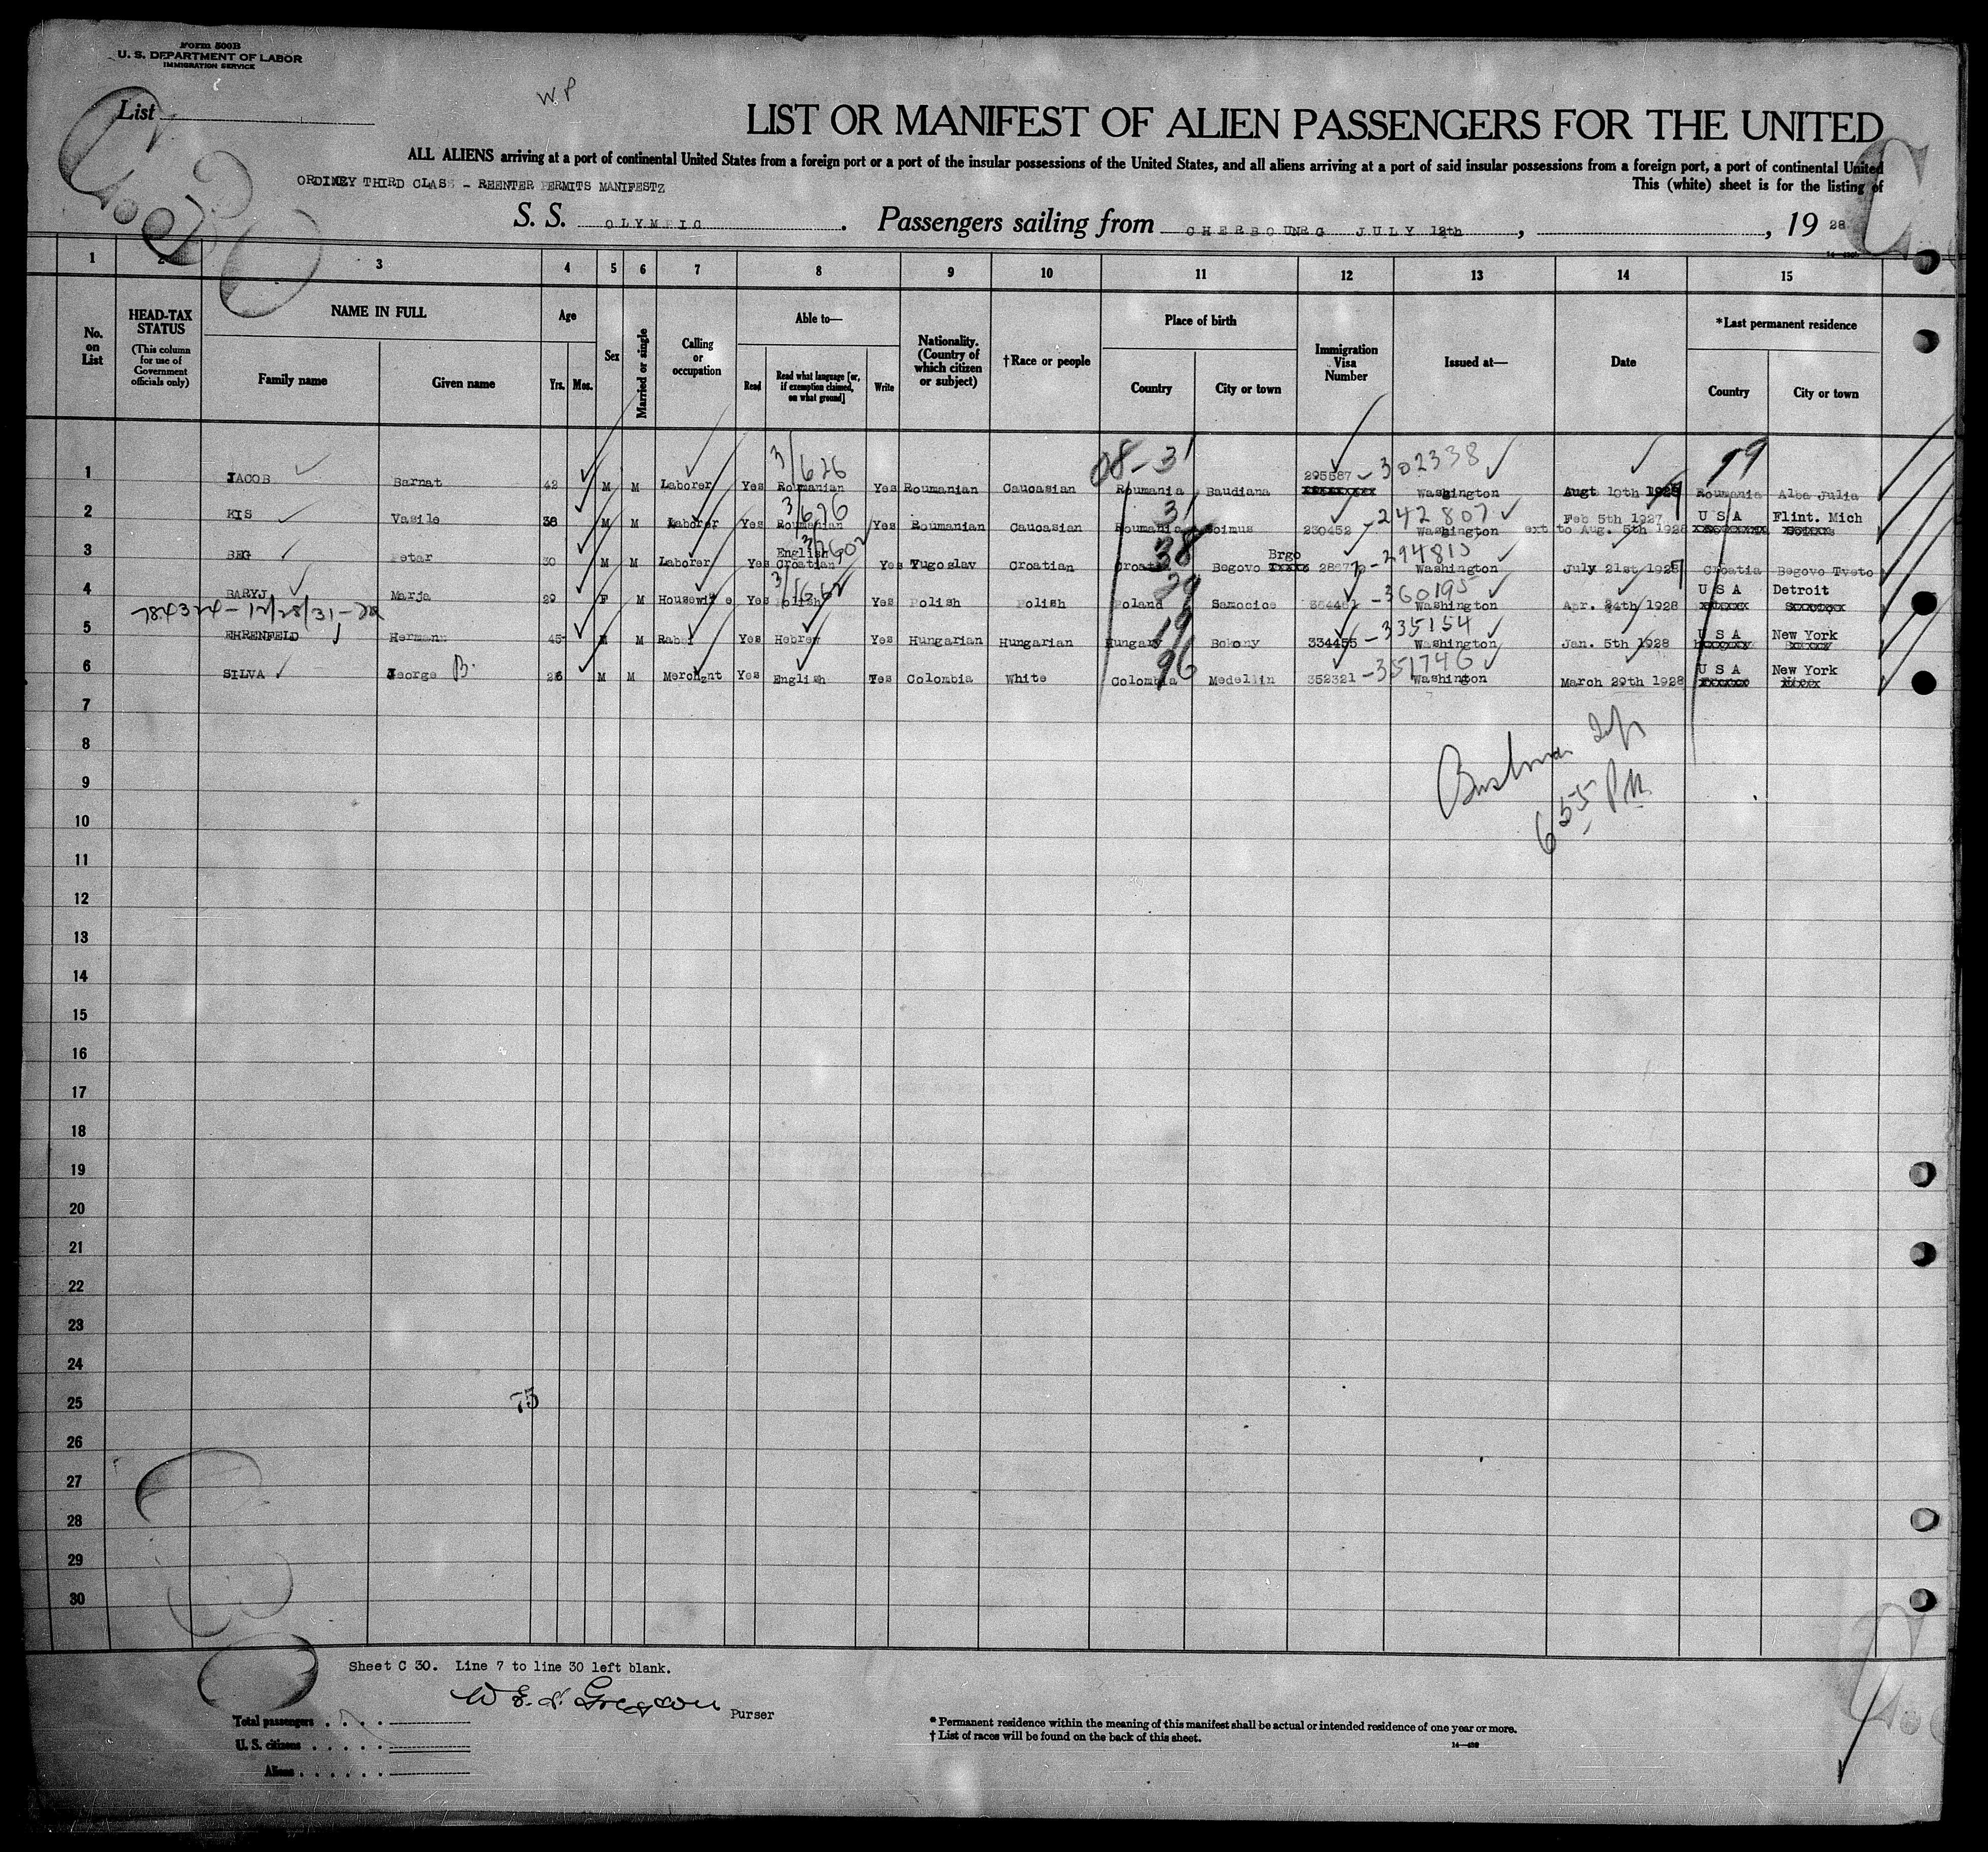 Form 500B
U. S. DEPARTMENT OF LABOR
IMMIGRATION SERVICE
List
W P
LIST OR MANIFEST OF ALIEN PASSENGERS FOR THE UNITED
ALL ALIENS arriving at a port of continental United States from a foreign port or a port of the insular possessions of the United States, and all aliens arriving at a port of said insular possessions from a foreign port, a port of continental United
This (white) sheet is for the listing of
THIRD CLASS - REENTER PERMITS MANIFESTZ
S. S. OLYMPIC . Passengers sailing from CHERBOUNRG JULY 12th , , 19 28
1 2 3 4 5 6 7 8 9 10 11 12 13 14 15
No. on List
HEAD-TAX STATUS (This column for use of Government officials only)
NAME IN FULL
Family name
Given name
Age
Yrs. Mos.
Sex
Married or single
Calling or occupation
Able to—
Read
Read what language [or, if exemption claimed, on what ground]
Write
Nationality. (Country of which citizen or subject)
†Race or people
Place of birth
Country
City or town
Immigration Visa Number
Issued at—
Date
*Last permanent residence
Country
City or town
1 JACOB Barnat 42 M M Laborer Yes 3/626 Roumanian Yes Roumanian Caucasian 08-31 Roumania Baudiana 295587 -302338 Washington Augt 10th 1927 Roumania Alba Julia
2 KIS Vasile 38 M M Laborer Yes 3/626 Roumanian Yes Roumanian Caucasian 31 Roumania Soimus 230452 -242807 Washington Feb 5th 1927 ext to Aug. 5th 1928 U S A Flint. Mich
3 BEG Petar 30 M M Laborer Yes English Croatian Yes Yugoslav Croatian 38 Croatia Begovo Brgo -294813 Washington July 21st 1927 Croatia Begovo Tveto
4 BARYJ Marja 29 F M Housewife Yes Polish Yes Polish Polish 29 Poland Samocice -360195 Washington Apr. 24th 1928 U S A Detroit
784324-12/28/31-
5 EHRENFELD Hermann 45 M M Rabbi Yes Hebrew Yes Hungarian Hungarian 19 Hungary Bokony 334455 -335154 Washington Jan. 5th 1928 U S A New York
6 SILVA George B. 26 M M Merchznt Yes English Yes Colombia White 96 Colombia Medellin 352321 -351746 Washington March 29th 1928 U S A New York
7
8
9
6 55 PM
10
11
12
13
14
15
16
17
18
19
20
21
22
23
24
25 75
26
27
28
29
30
Sheet C 30. Line 7 to line 30 left blank.
Purser
Total passengers
U. S. citizens
Aliens
* Permanent residence within the meaning of this manifest shall be actual or intended residence of one year or more.
† List of races will be found on the back of this sheet.